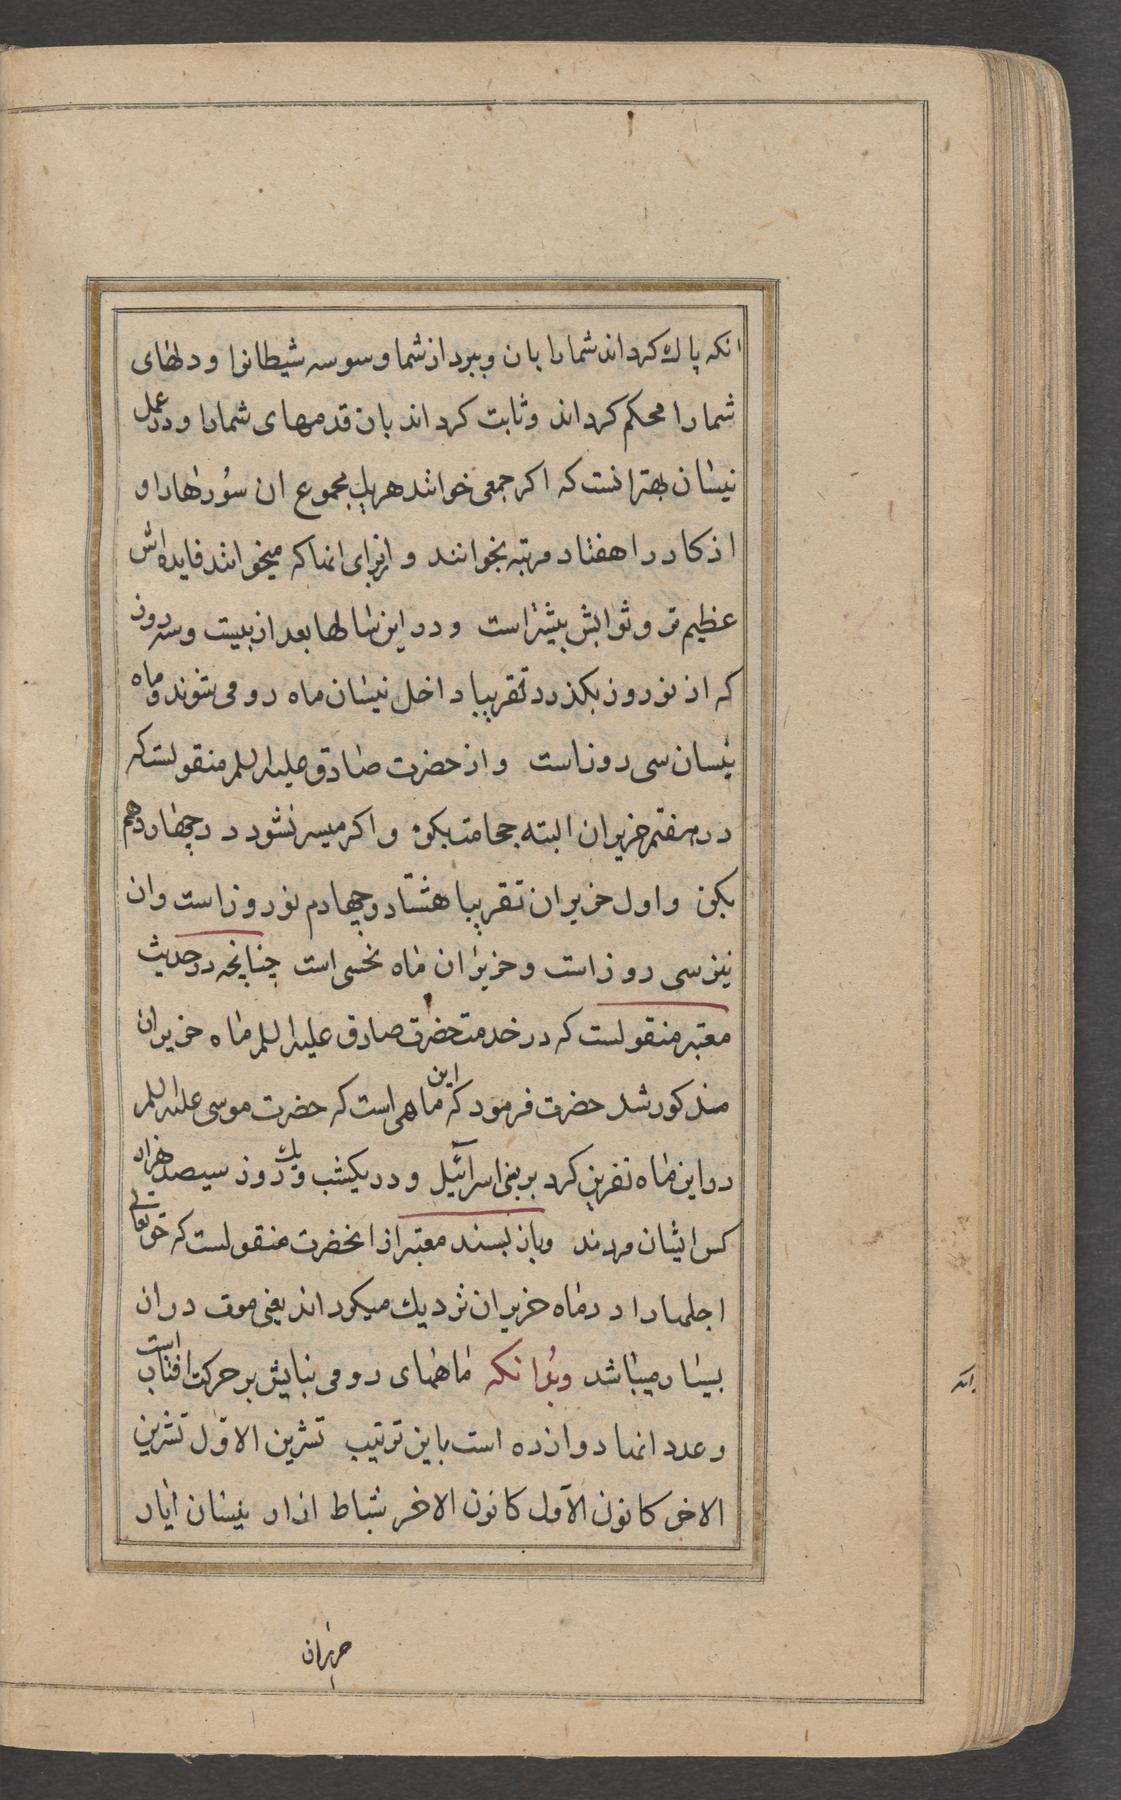 انکه پاك کرداند شمارا بان و ببرد از شما وسوسه شیطانرا و دلهای
شمارا محکم کرداند و ثابت کرداند بان قدمهای شمارا و در عمل
نیسان بهتر انست که اکر جمعی خوانند هر یك مجموع ان سورهارا و
اذکار را هفتاد مرتبه بخوانند و از برای انها که میخوانند فایده اش
عظیم تر و ثوابش بیشتر است و در این سالها بعد از بیست و سه روز
که از نوروز بکذرد تقریبا داخل نیسان ماه رومی شوند و ماه
نیسان سی روز است و از حضرت صادق علیه السلم منقولست که
در هفتم حزیران البته حجامت بکن و اکر میسر نشود در چهاردهم
بکن و اول حزیران تقریبا هشتاد و چهارم نوروز است وان
نیز سی روز است و حزیران ماه نحسی است چنانچه در حدیث
معتبر منقولست که در خدمت حضرت صادق علیه السلم ماه حزیران
مذکور شد حضرت فرمود که این ماهی است که حضرت موسی علیه السلم
در این ماه نفرین کرد بر بنی اسرآئیل و در یکشب و یك روز سیصد هزار
کس ایشان مردند و باز بسند معتبر از انحضرت منقولست که حق تعالی
اجلهارا در ماه حزیران نزدیك میکرداند یعنی موت در ان
بسیار میباشد و بدانکه ماههای رومی بنایش بر حرکت افتاب است
و عدد انها دوازده است باین ترتیب تشرین الاوّل تشرین
الاخر کانون الآول کانون الاخر شباط اذار نیسان ایار
حزیران